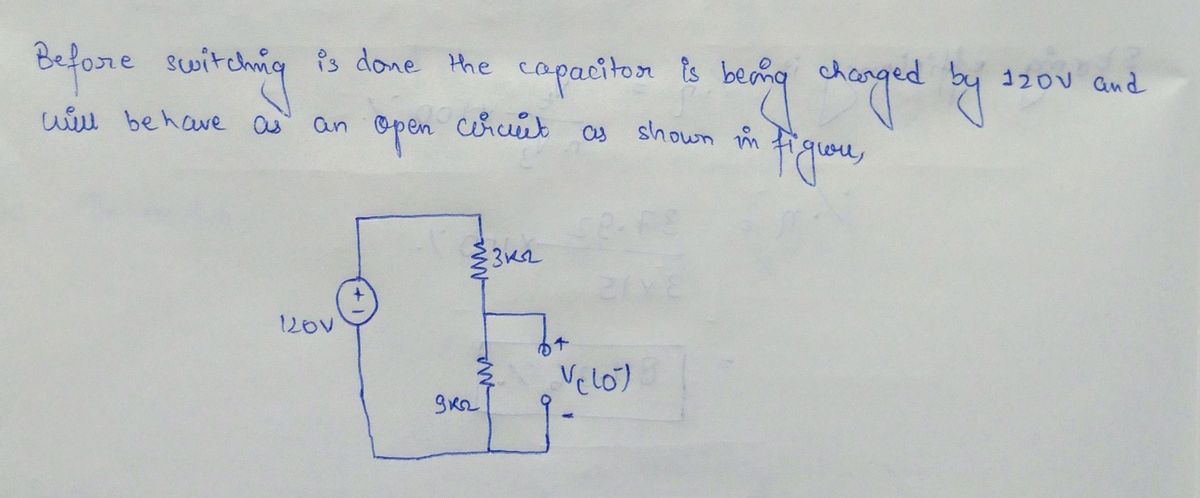 Before switching is done the capacitor is being charged by 120V and
will behave as an open circuit as shown in figure,
3KΩ
120V
+
-
+
Vc(0-)
-
9KΩ